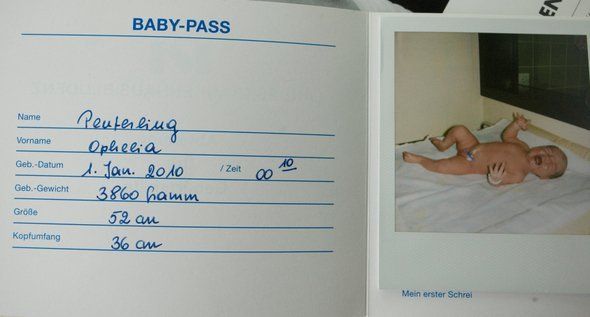 BABY-PASS
Name Peuterling
Vorname Ophelia
Geb.-Datum 1. Jan. 2010 / Zeit 00 10
Geb.-Gewicht 3860 Gramm
Größe 52 cm
Kopfumfang 36 cm
Mein erster Schrei